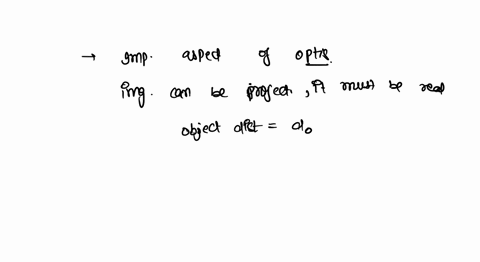 → imp. aspect of optic.
img. can be project, it must be real
object dist = do